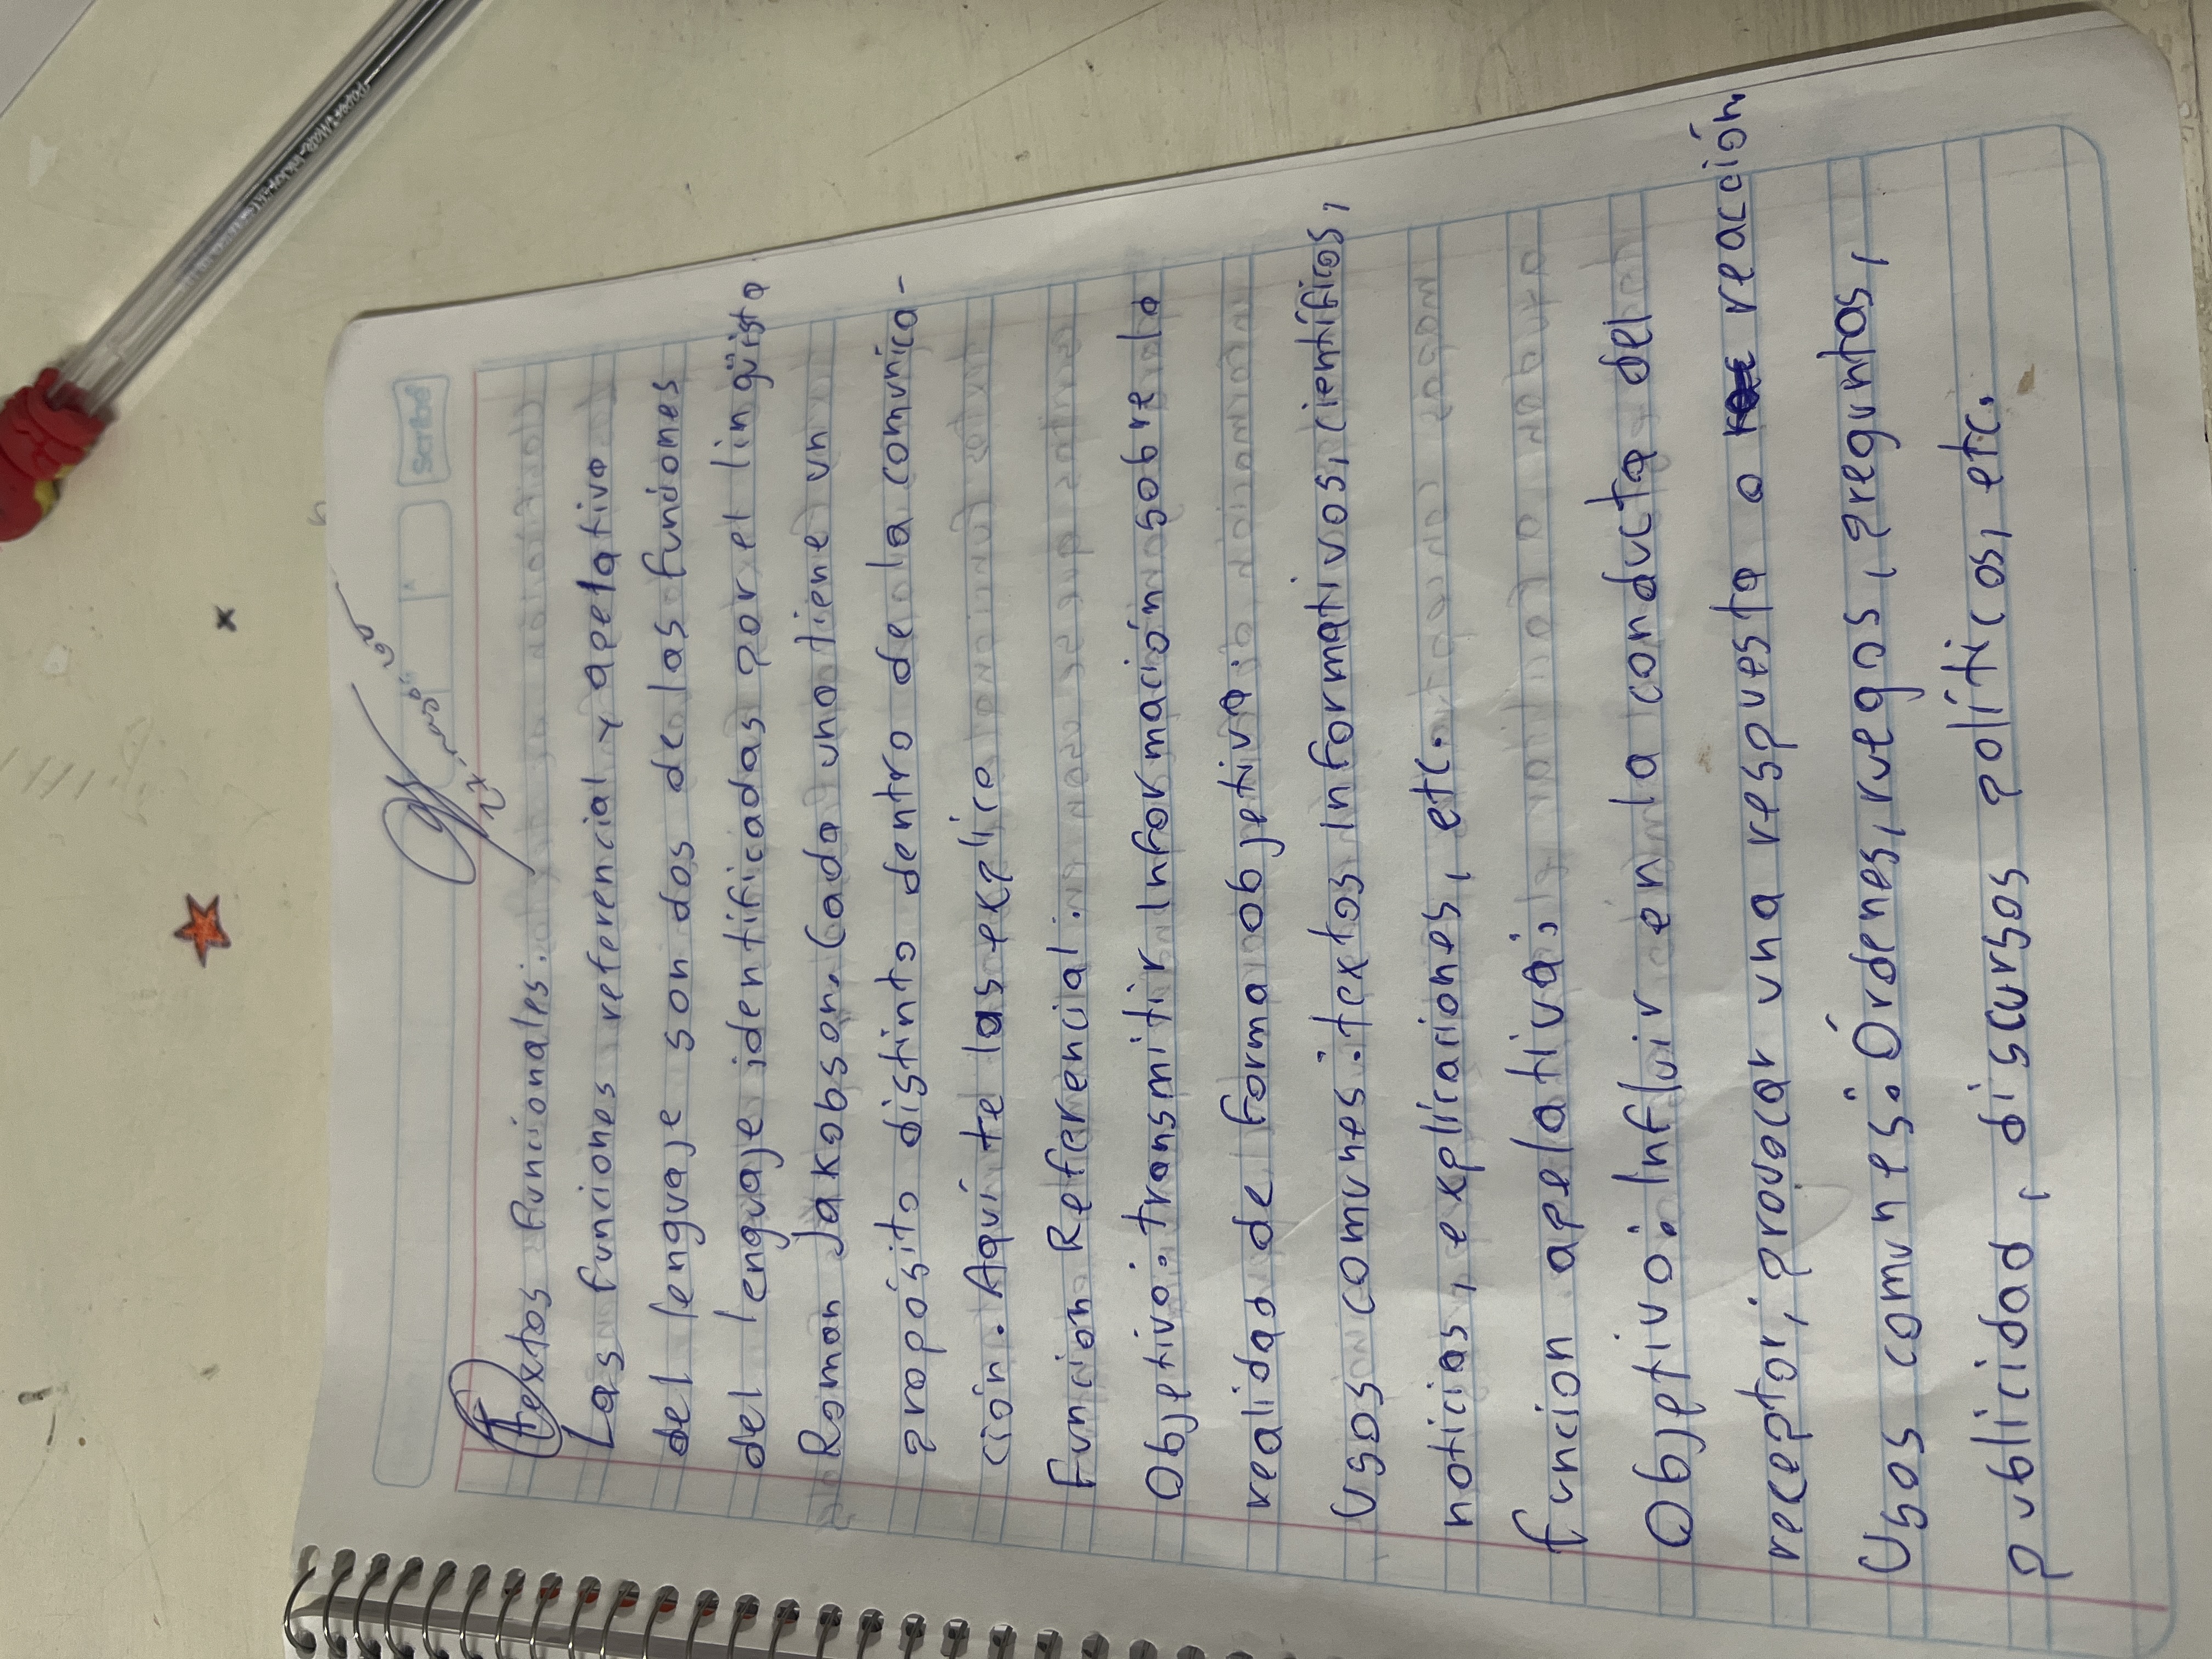 Scribe
Textos funcionales.
Las funciones referencial y apelativa
del lenguaje son dos de las funciones
del lenguaje identificadas por el lingüista
Roman Jakobson. Cada una tiene un
propósito distinto dentro de la comunica-
ción. Aquí te las explico
Función Referencial:
Objetivo: transmitir información sobre la
realidad de forma objetiva.
Usos comunes: textos informativos, científicos,
noticias, explicaciones, etc.
función apelativa:
Objetivo: Influir en la conducta del
receptor, provocar una respuesta o reacción
Usos comunes: Órdenes, ruegos, preguntas,
publicidad, discursos políticos, etc.